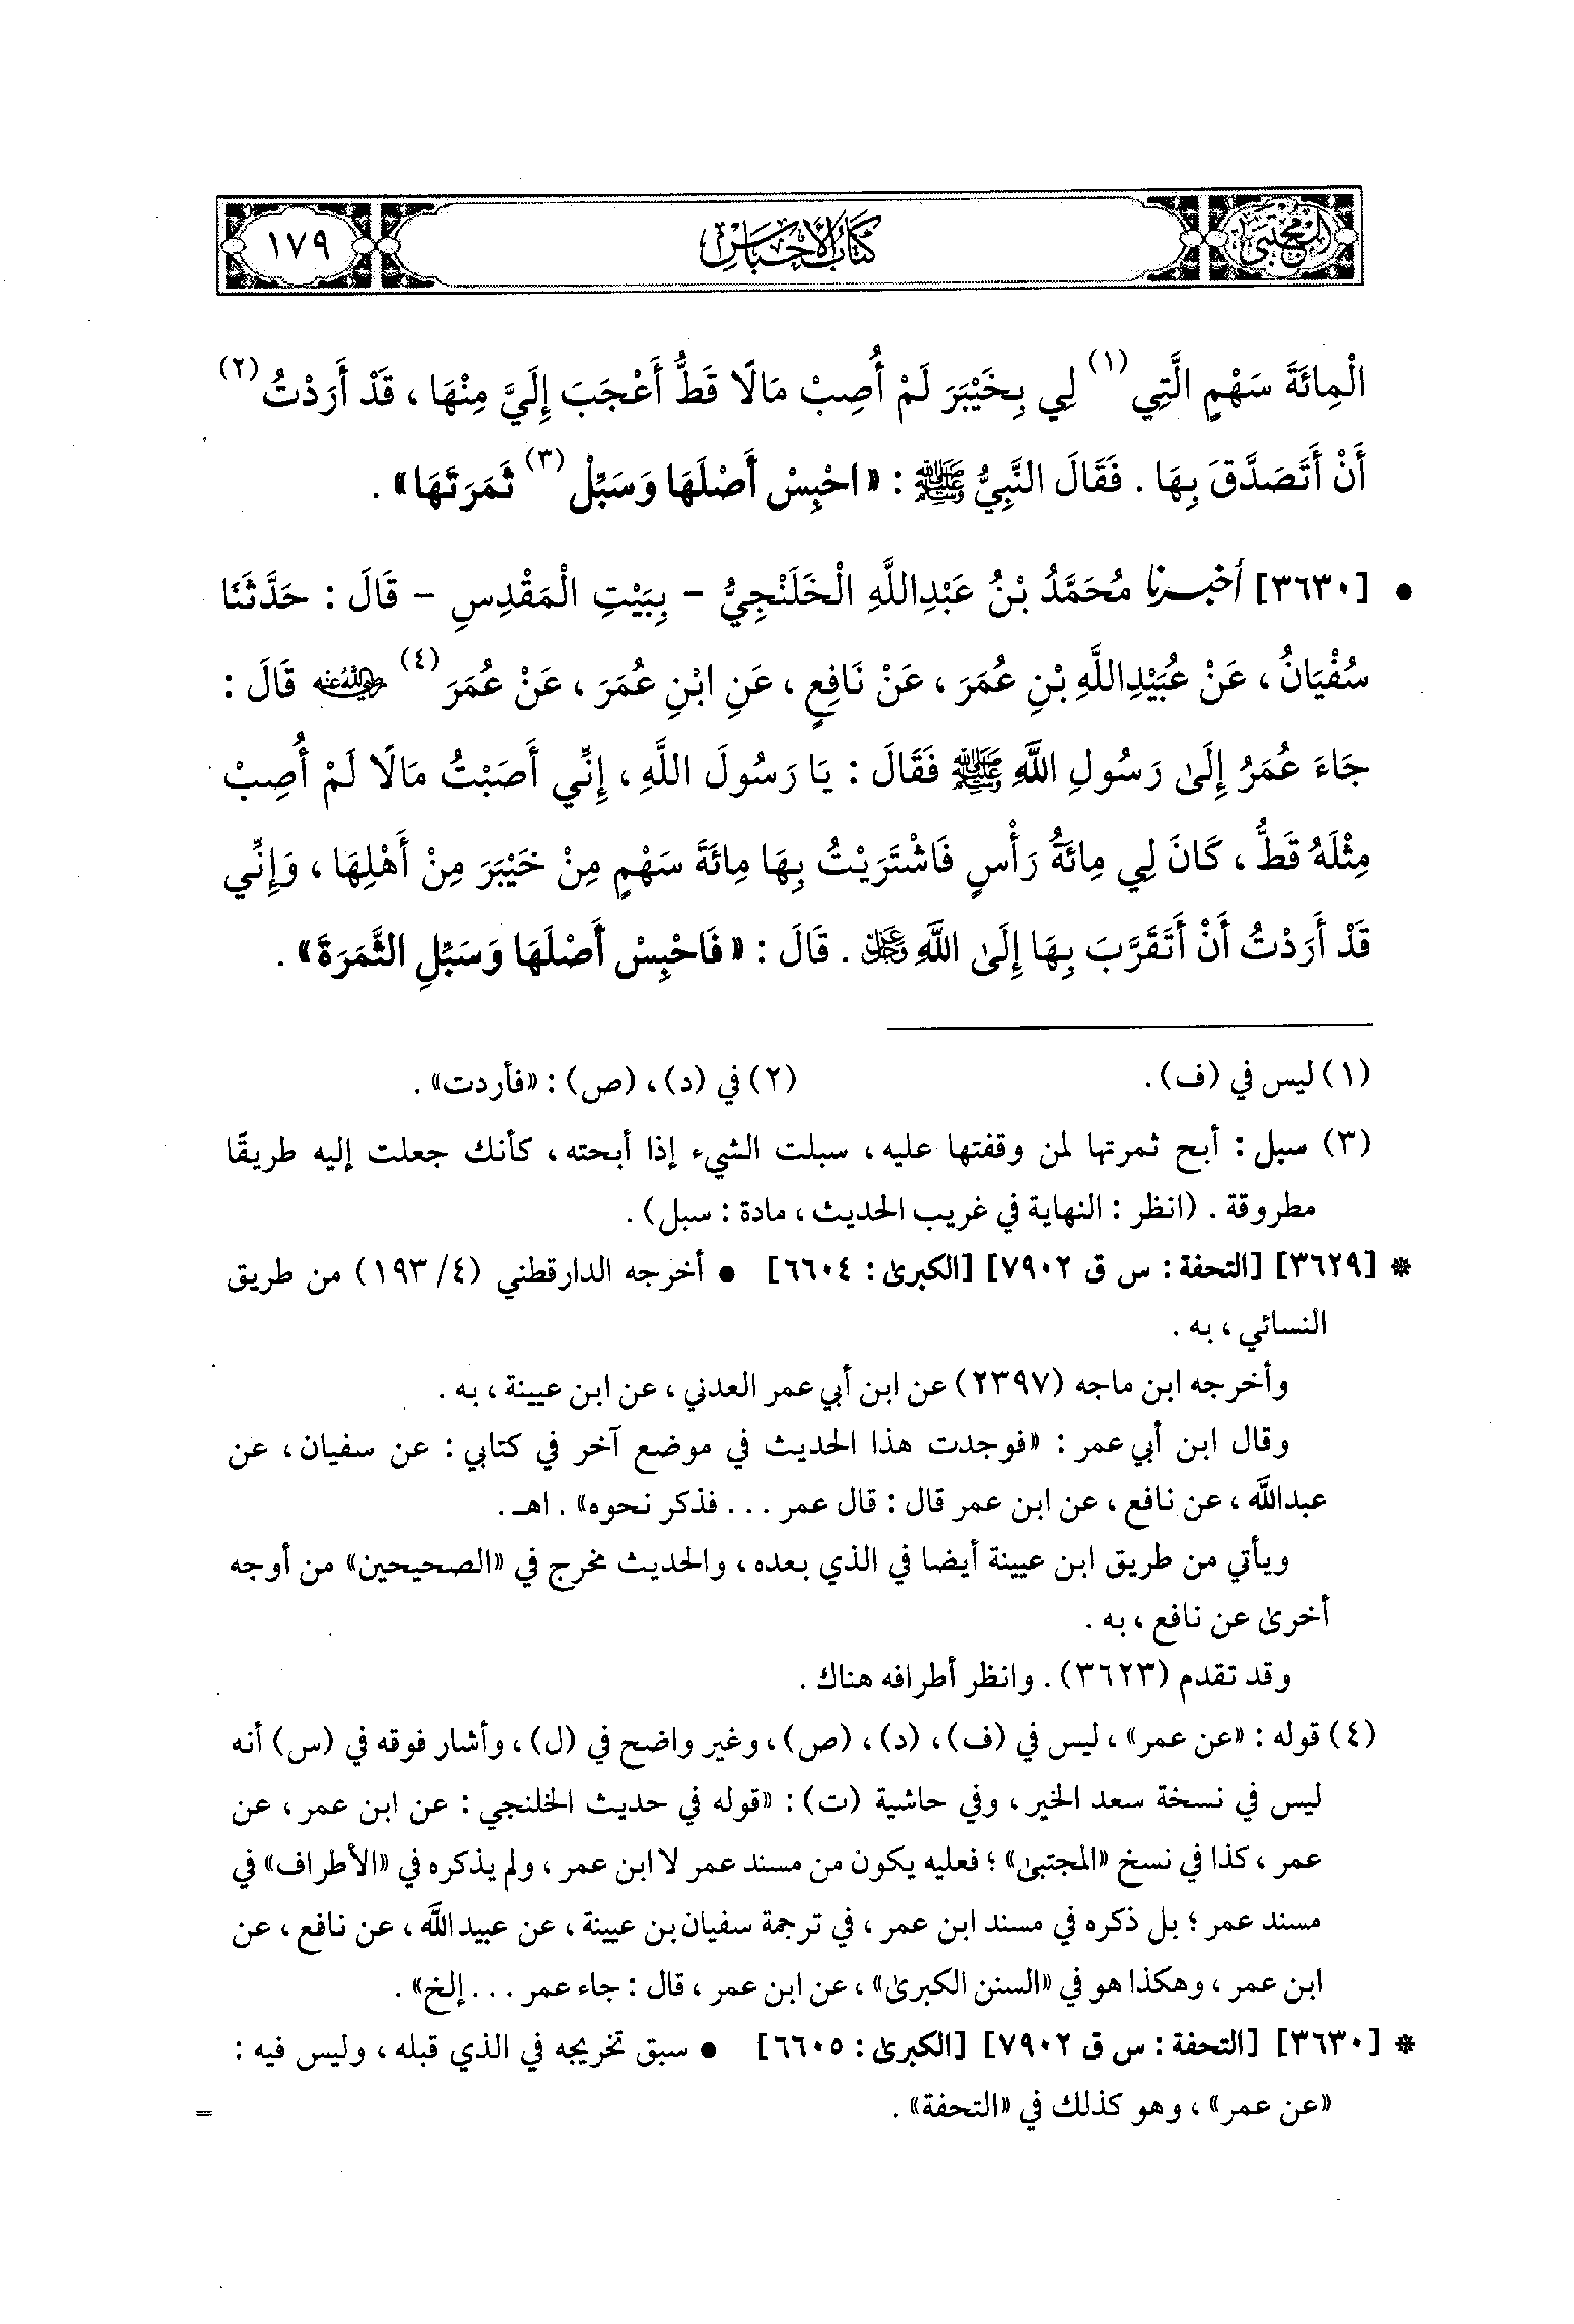 المجتبى
كتاب الأحباس
١٧٩
الْمِائَةَ سَهْمٍ الَّتِي (١) لِي بِخَيْبَرَ لَمْ أُصِبْ مَالًا قَطُّ أَعْجَبَ إِلَيَّ مِنْهَا ، قَدْ أَرَدْتُ (٢)
أَنْ أَتَصَدَّقَ بِهَا . فَقَالَ النَّبِيُّ ﷺ : «احْبِسْ أَصْلَهَا وَسَبِّلْ (٣) ثَمَرَتَهَا» .
• [٣٦٣٠] أخبرنا مُحَمَّدُ بْنُ عَبْدِاللَّهِ الْخَلَنْجِيُّ - بِبَيْتِ الْمَقْدِسِ - قَالَ : حَدَّثَنَا
سُفْيَانُ ، عَنْ عُبَيْدِاللَّهِ بْنِ عُمَرَ ، عَنْ نَافِعٍ ، عَنِ ابْنِ عُمَرَ ، عَنْ عُمَرَ (٤) رضي الله عنه قَالَ :
جَاءَ عُمَرُ إِلَىٰ رَسُولِ اللَّهِ ﷺ فَقَالَ : يَا رَسُولَ اللَّهِ ، إِنِّي أَصَبْتُ مَالًا لَمْ أُصِبْ
مِثْلَهُ قَطُّ ، كَانَ لِي مِائَةُ رَأْسٍ فَاشْتَرَيْتُ بِهَا مِائَةَ سَهْمٍ مِنْ خَيْبَرَ مِنْ أَهْلِهَا ، وَإِنِّي
قَدْ أَرَدْتُ أَنْ أَتَقَرَّبَ بِهَا إِلَىٰ اللَّهِ عز وجل . قَالَ : «فَاحْبِسْ أَصْلَهَا وَسَبِّلِ الثَّمَرَةَ» .
(١) ليس في (ف) . (٢) في (د) ، (ص) : «فأردت» .
(٣) سبل : أبح ثمرتها لمن وقفتها عليه ، سبلت الشيء إذا أبحته ، كأنك جعلت إليه طريقًا
مطروقة . (انظر : النهاية في غريب الحديث ، مادة : سبل) .
* [٣٦٢٩] [التحفة : س ق ٧٩٠٢] [الكبرىٰ : ٦٦٠٤] • أخرجه الدارقطني (٤/ ١٩٣) من طريق
النسائي ، به .
وأخرجه ابن ماجه (٢٣٩٧) عن ابن أبي عمر العدني ، عن ابن عيينة ، به .
وقال ابن أبي عمر : «فوجدت هذا الحديث في موضع آخر في كتابي : عن سفيان ، عن
عبدالله ، عن نافع ، عن ابن عمر قال : قال عمر ... فذكر نحوه» . اهـ .
ويأتي من طريق ابن عيينة أيضا في الذي بعده ، والحديث مخرج في «الصحيحين» من أوجه
أخرىٰ عن نافع ، به .
وقد تقدم (٣٦٢٣) . وانظر أطرافه هناك .
(٤) قوله : «عن عمر» ، ليس في (ف) ، (د) ، (ص) ، وغير واضح في (ل) ، وأشار فوقه في (س) أنه
ليس في نسخة سعد الخير ، وفي حاشية (ت) : «قوله في حديث الخلنجي : عن ابن عمر ، عن
عمر ، كذا في نسخ «المجتبىٰ» ؛ فعليه يكون من مسند عمر لا ابن عمر ، ولم يذكره في «الأطراف» في
مسند عمر ؛ بل ذكره في مسند ابن عمر ، في ترجمة سفيان بن عيينة ، عن عبيدالله ، عن نافع ، عن
ابن عمر ، وهكذا هو في «السنن الكبرىٰ» ، عن ابن عمر ، قال : جاء عمر ... إلخ» .
* [٣٦٣٠] [التحفة : س ق ٧٩٠٢] [الكبرىٰ : ٦٦٠٥] • سبق تخريجه في الذي قبله ، وليس فيه :
«عن عمر» ، وهو كذلك في «التحفة» .
=